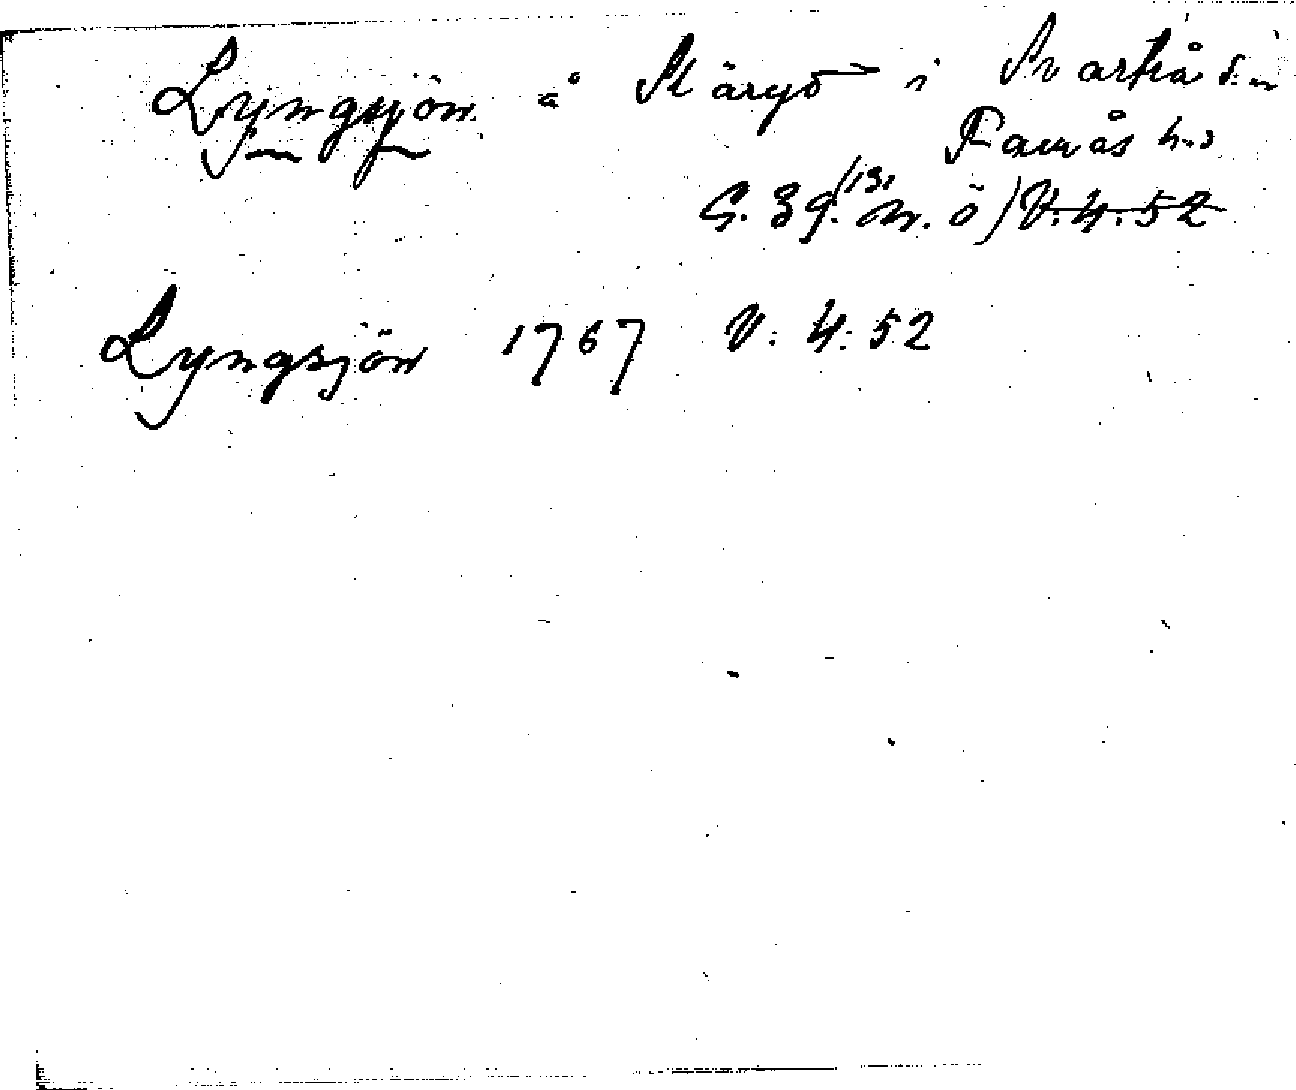 Lyngsjön å Käryd i Svartrå s:n
Faurås h:d
G. 39. /131 N. Ö) V: 4: 52
Lyngsjön 1767 V: 4: 52